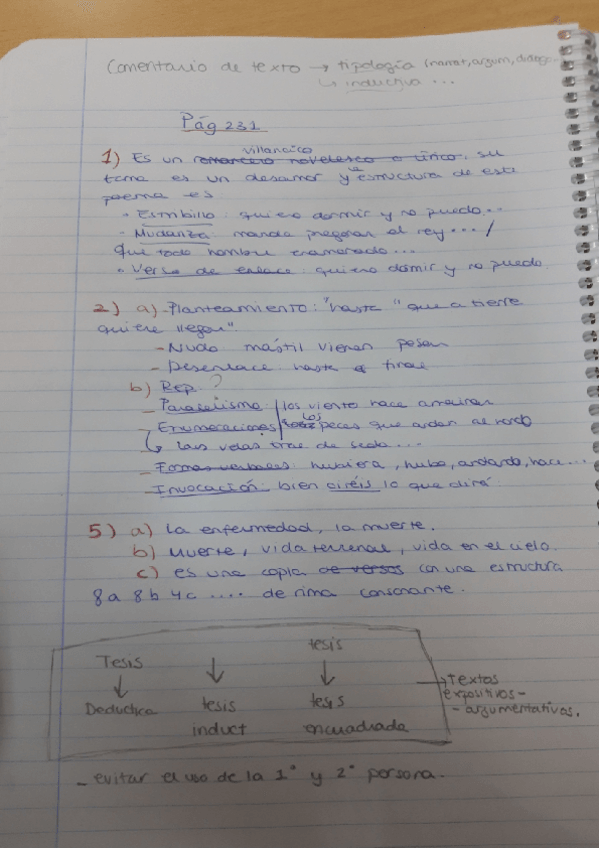 Comentario de texto → tipología (narrat, argum, dialog.
↳ inductivo ...
Pág 231
villancico
1) Es un romancero novelesco o lírico, su
tema es un desamor y la estructura de este
poema es:
• Estribillo: quiero dormir y no puedo...
- Mudanza: manda pregonar el rey... /
que todo hombre enamorado...
• Verso de enlace: quiero dormir y no puedo.
2) a) - Planteamiento: "hasta" que a tierra
quiere llegar"
- Nudo mástil vienen posar
- Desenlace: hasta el final
b) Rep. ?
- Paralelismo: los viento hace amainar
- Enumeraciones los peces que andan al hondo
↳ las velas trae de seda...
- Formas verbales: hubiera, hubo, andando, hace...
- Invocación: bien oiréis lo que dirá.
5) a) La enfermedad, la muerte.
b) Muerte, vida terrenal, vida en el cielo.
c) es una copla de versos con una estructura
8a 8b 4c .... de rima consonante.
tesis
Tesis ↓ ↓
↓
Deductiva tesis tesis
induct encuadrada
→ textos
expositivos-
- argumentativos.
- evitar el uso de la 1ª y 2ª persona.